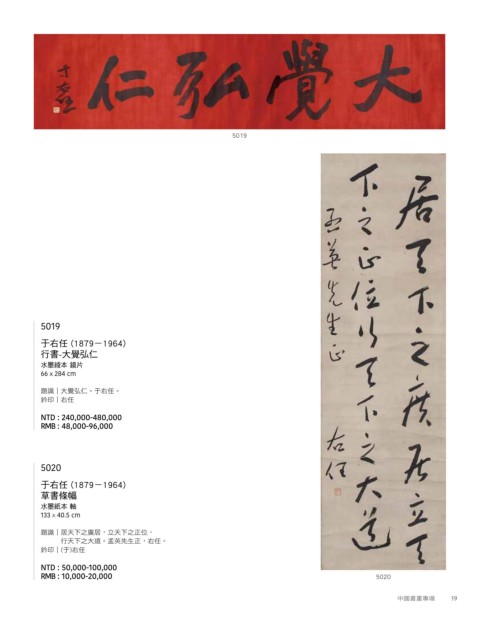 大覺弘仁
于右任
5019
居天下之廣居立天
下之正位行天下之大道
孟英先生正
右任
5019
于右任 (1879－1964)
行書-大覺弘仁
水墨綾本 鏡片
66 x 284 cm
題識｜大覺弘仁。于右任。
鈐印｜右任
NTD : 240,000-480,000
RMB : 48,000-96,000
5020
于右任 (1879－1964)
草書條幅
水墨紙本 軸
133 x 40.5 cm
題識｜居天下之廣居，立天下之正位，
行天下之大道。孟英先生正，右任。
鈐印｜(于)右任
NTD : 50,000-100,000
RMB : 10,000-20,000
5020
中國書畫專場 19